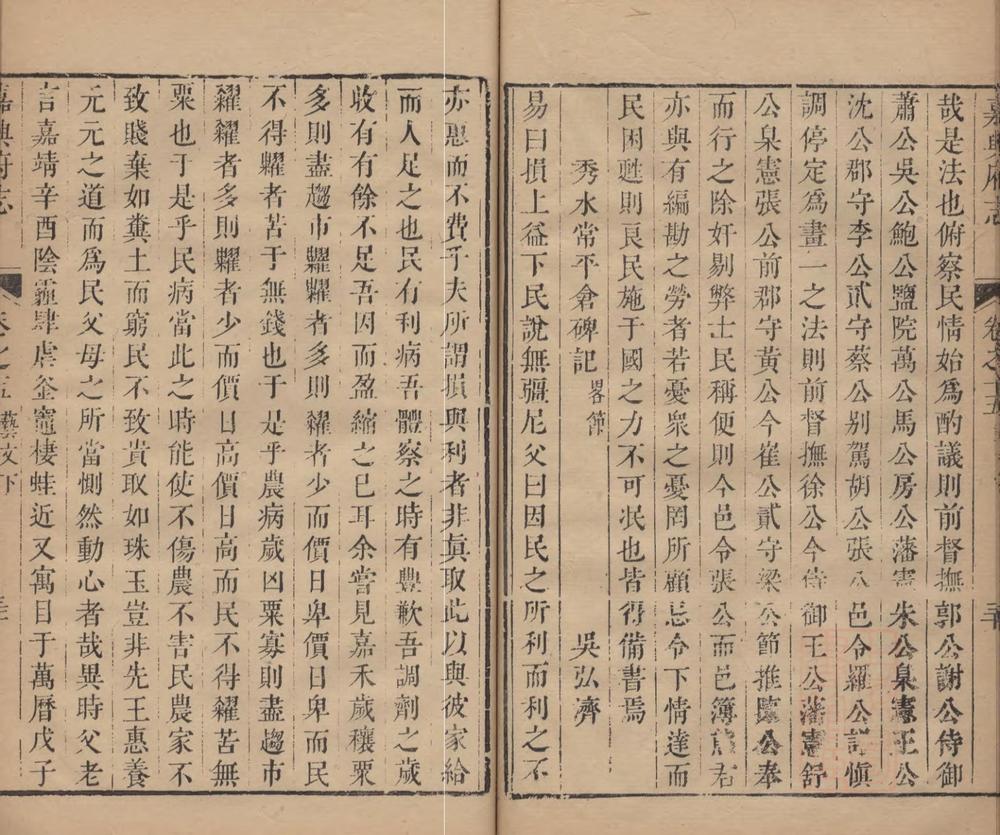 嘉興府志 卷之十五
哉是法也俯察民情始爲酌議則前督撫郭公謝公侍御
蕭公吳公鮑公鹽院萬公馬公房公藩憲朱公臬憲王公
沈公郡守李公貳守蔡公别駕胡公張公邑令羅公譚愼
調停定爲畫一之法則前督撫徐公今侍御王公藩憲舒
公臬憲張公前郡守黃公今崔公貳守梁公節推陳公奉
而行之除奸剔弊士民稱便則今邑令張公而邑簿熊君
亦與有編勘之勞者若憂衆之憂罔所顧忌令下情達而
民困甦則良民施于國之力不可泯也皆得備書焉
秀水常平倉碑記 畧節 吳弘濟
易曰損上益下民說無疆尼父曰因民之所利而利之不
亦惠而不費乎夫所謂損與利者非眞取此以與彼家給
而人足之也民有利病吾體察之時有豐歉吾調劑之歲
收有有餘不足吾因而盈縮之已耳余嘗見嘉禾歲穰粟
多則盡趨市糶糶者多則糴者少而價日卑價日卑而民
不得糶者苦于無錢也于是乎農病歲凶粟寡則盡趨市
糴糴者多則糶者少而價日高價日高而民不得糴苦無
粟也于是乎民病當此之時能使不傷農不害民農家不
致賤棄如糞土而窮民不致貴取如珠玉豈非先王惠養
元元之道而爲民父母之所當惻然動心者哉異時父老
言嘉靖辛酉陰霾肆虐釜竈棲蛙近又寓目于萬曆戊子
嘉興府志 卷之十五 藝文下